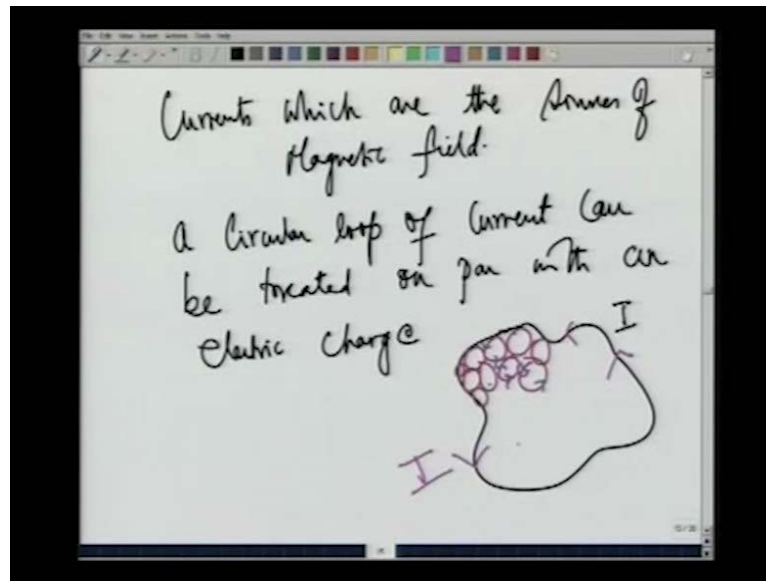 File Edit View Insert Actions Tools Help
Currents which are the Sources of
Magnetic field.
A Circular loop of Current Can
be treated on par with an
electric charge
I
I